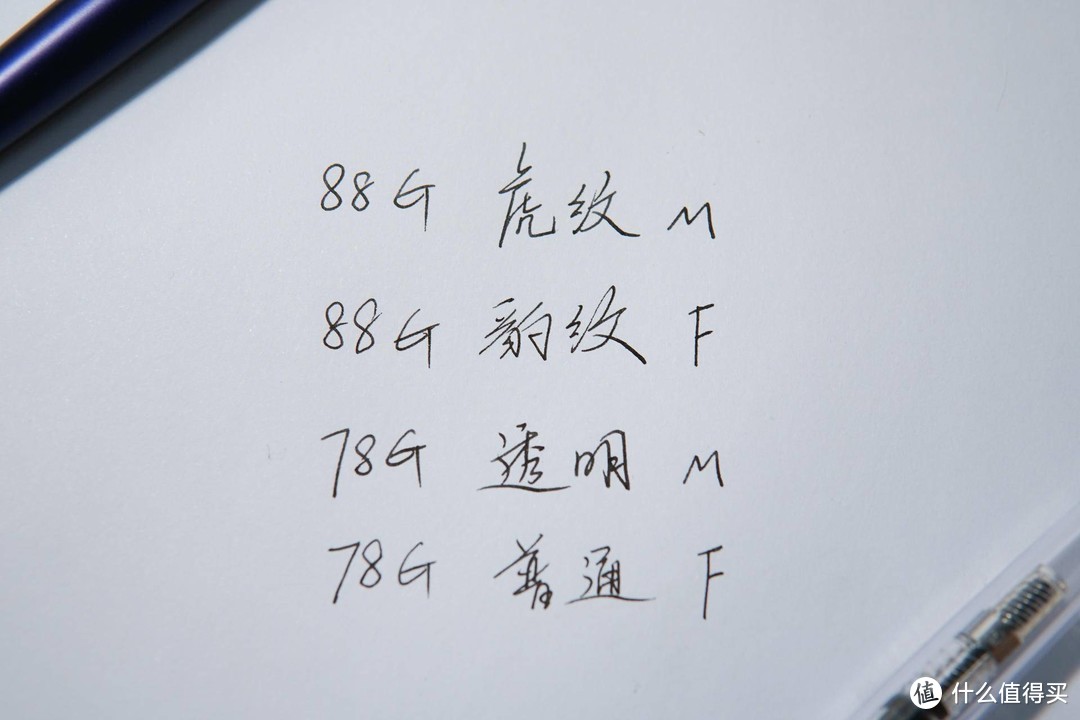 88G 虎纹 M
88G 豹纹 F
78G 透明 M
78G 普通 F
值 什么值得买